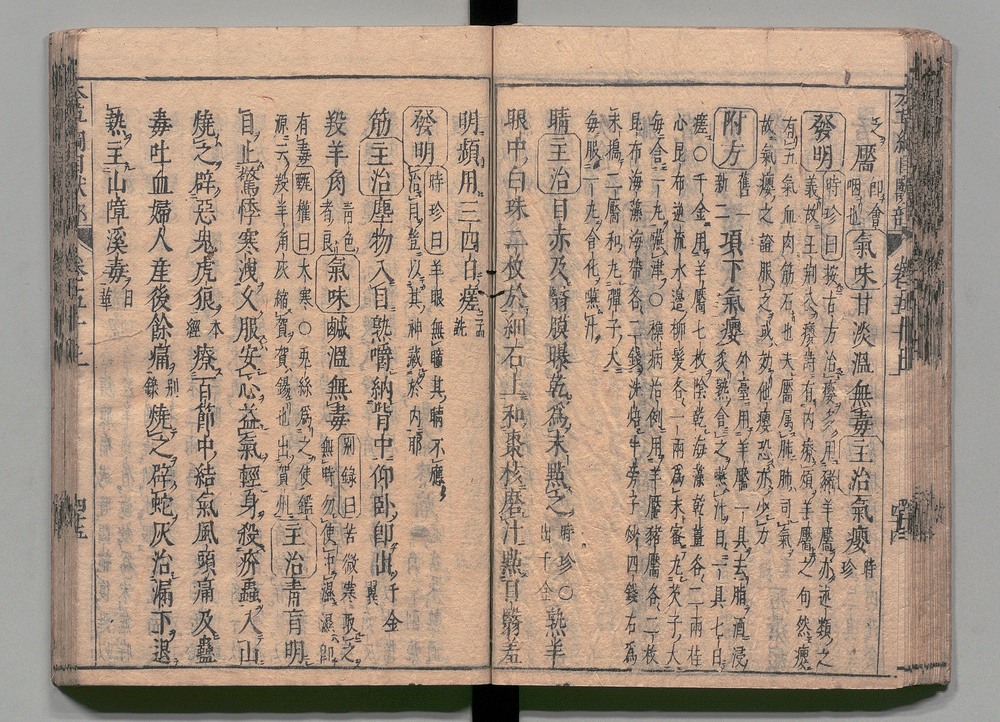 之靨 即會咽也 氣味甘淡溫無毒主治氣癭 時珍
發明 時珍曰按古方治癭多用豬羊靨亦述類之
義故王荆公癭詩有內療煩羊靨之句然癭
有五氣血肉筋石也夫靨属肺肺司氣
故氣癭之證服之或効他癭恐亦少力
附方 舊一新二 項下氣癭 外臺用羊靨一具去脂酒浸
炙熟含之嚥汁日一具七日
瘥○千金用羊靨七枚陰乾海藻乾薑各二兩桂
心昆布逆流水邊柳鬚各一兩爲末蜜丸芡子大
每含一丸嚥津○雜病治例用羊靨豬靨各二枚
昆布海藻海帶各二錢洗焙牛蒡子炒四錢右爲
末搗二靨和丸彈子大
每服一丸含化嚥汁
睛 主治目赤及翳膜曝乾爲末點之 時珍出千金 ○熟羊
眼中白珠二枚於細石上和棗核磨汁點目翳羞
明頻用三四日瘥 孟詵
發明 時珍曰羊眼無瞳其睛不應
治目豈以其神藏於内耶
筋 主治塵物入目熟嚼納眥中仰卧即出 千金翼
羖羊角 青色者良 氣味鹹溫無毒 别録曰苦微寒取之
無時勿使中濕濕即
有毒甄權曰大寒○兎絲爲之使鏡
源云羖羊角灰縮賀賀錫也出賀州 主治青盲明
目止驚悸寒洩久服安心益氣輕身殺疥蟲入山
燒之辟惡鬼虎狼 本經 療百節中結氣風頭痛及蠱
毒吐血婦人産後餘痛 别錄 燒之辟蛇灰治漏下退
熱主山障溪毒 日華